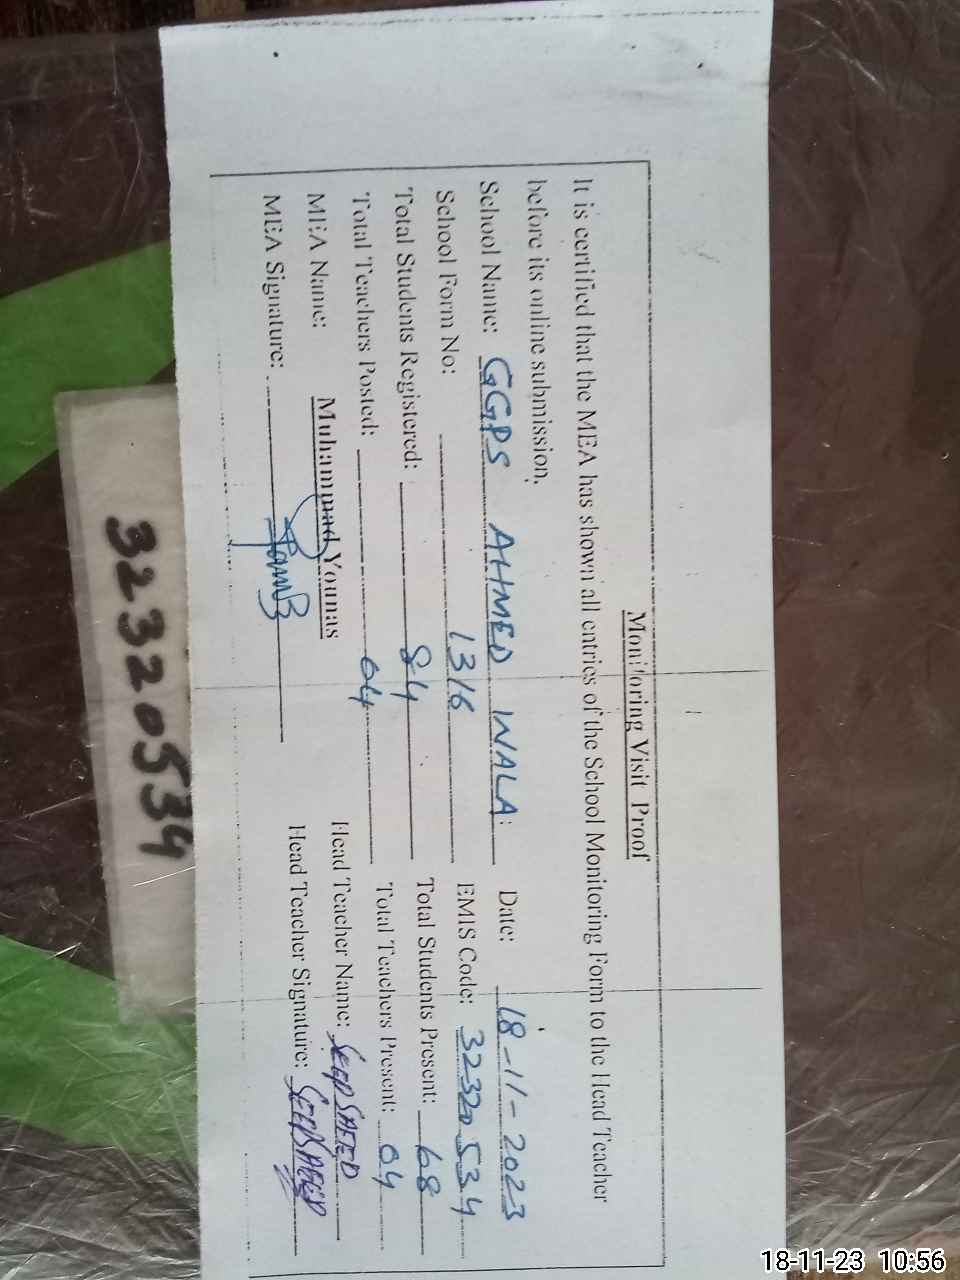 Monitoring Visit Proof
It is certified that the MEA has shown all entries of the School Monitoring Form to the Head Teacher
before its online submission.
School Name: GGPS AHMED WALA: Date: 18-11-2023
School Form No: 1316 EMIS Code: 32320534
Total Students Registered: 84 Total Students Present: 68
Total Teachers Posted: 04 Total Teachers Present: 04
MEA Name: Muhammad Younas Head Teacher Name:
MEA Signature: Head Teacher Signature:
32320534
18-11-23 10:56